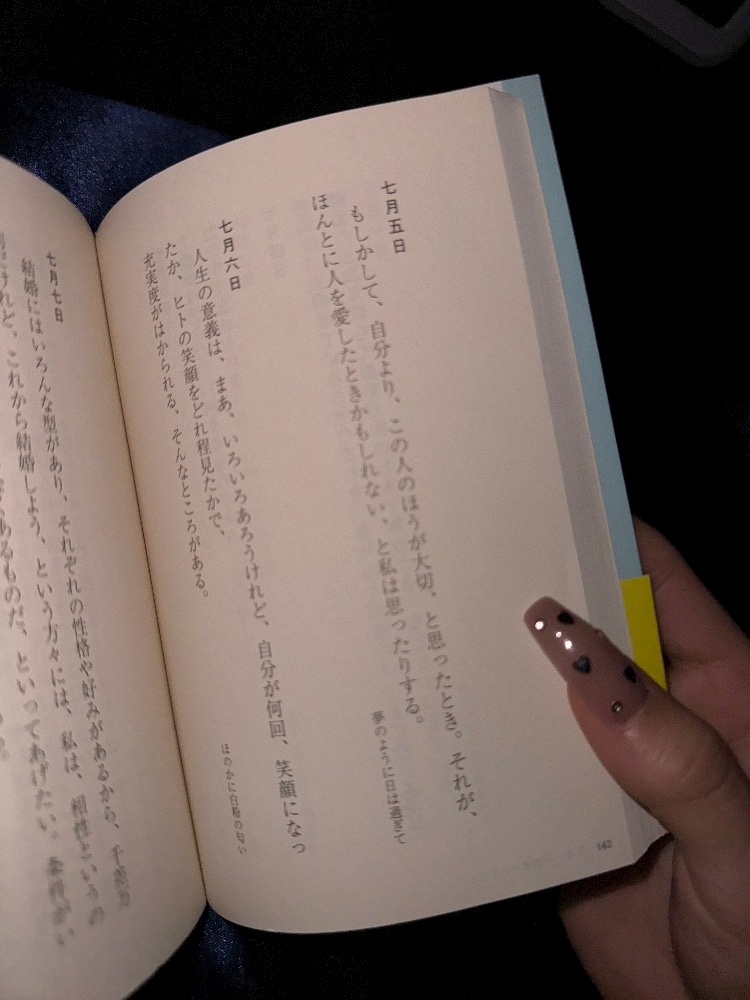 七月五日
もしかして、自分より、この人のほうが大切、と思ったとき。それが、
ほんとに人を愛したときかもしれない、と私は思ったりする。
夢のように日は過ぎて
七月六日
人生の意義は、まあ、いろいろあろうけれど、自分が何回、笑顔になっ
たか、ヒトの笑顔をどれ程見たかで、
充実度がはかられる、そんなところがある。
ほのかに白粉の匂い
142
七月七日
結婚にはいろんな型があり、それぞれの性格や好みがあるから、千差万
けれど、これから結婚しよう、という方々には、私は、相性というの
あるものだ、といってあげたい。